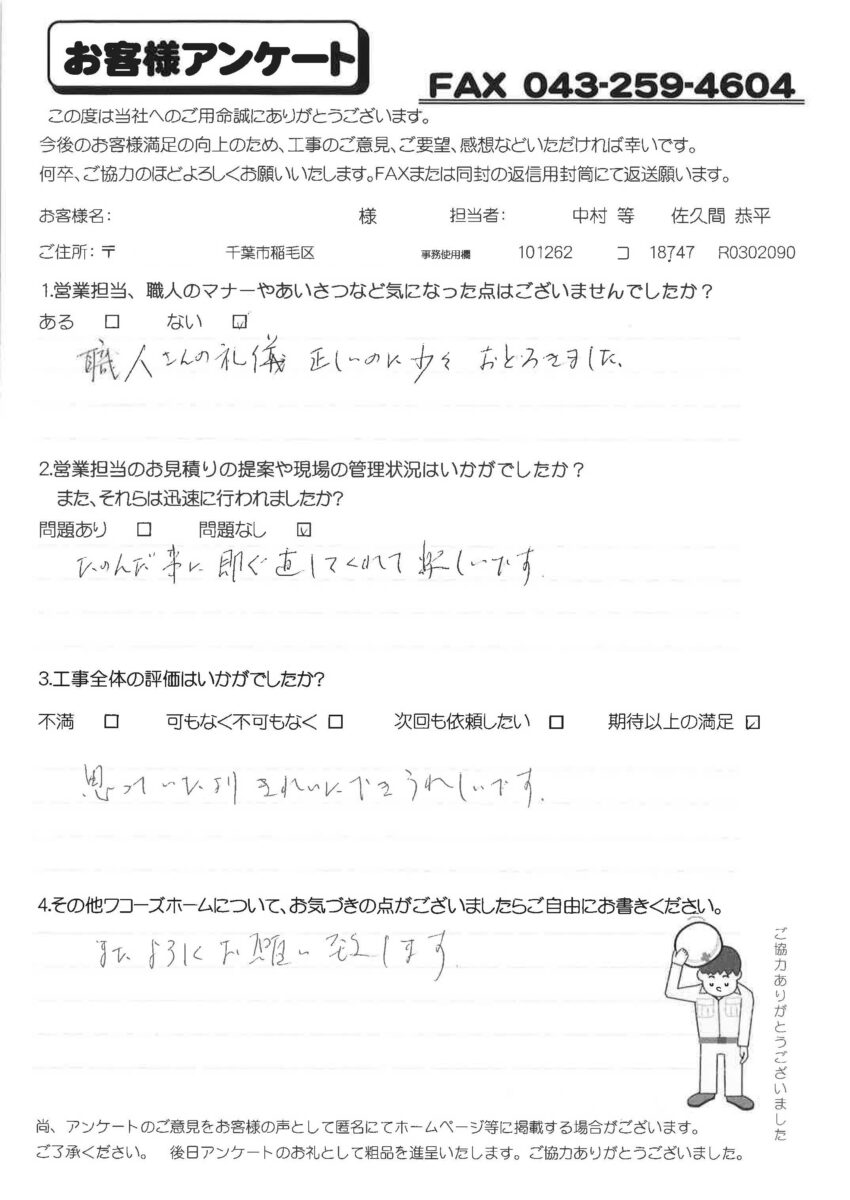 お客様アンケート
FAX 043-259-4604
この度は当社へのご用命誠にありがとうございます。
今後のお客様満足の向上のため、工事のご意見、ご要望、感想などいただければ幸いです。
何卒、ご協力のほどよろしくお願いいたします。FAXまたは同封の返信用封筒にて返送願います。
お客様名： 様 担当者： 中村 等 佐久間 恭平
ご住所：〒 千葉市稲毛区 事務使用欄 101262 コ 18747 R0302090
1.営業担当、職人のマナーやあいさつなど気になった点はございませんでしたか？
ある □ ない ☑
職人さんの礼儀正しいのに少々おどろきました。
2.営業担当のお見積りの提案や現場の管理状況はいかがでしたか？
また、それらは迅速に行われましたか?
問題あり □ 問題なし ☑
たのんだ事に即ぐ直してくれて嬉しいです.
3.工事全体の評価はいかがでしたか?
不満 □ 可もなく不可もなく □ 次回も依頼したい □ 期待以上の満足 ☑
思っていたよりきれいにできうれしいです.
4.その他ワコーズホームについて、お気づきの点がございましたらご自由にお書きください。
またよろしくお願い致します.
ご協力ありがとうございました
尚、アンケートのご意見をお客様の声として匿名にてホームページ等に掲載する場合がございます。
ご了承ください。 後日アンケートのお礼として粗品を進呈いたします。ご協力ありがとうございました。